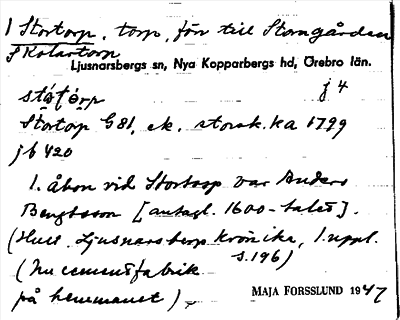 1 Stortorp, torp, förr till Storngården
f Kolartorp
Ljusnarsbergs sn, Nya Kopparbergs hd, Örebro län.
j 4
stó̩rtòrp
Stortorp G 81, ek. storsk.ka 1799
jb 420
1. åbon vid Stortorp var Anders
Bengtsson [antagl. 1600-talet].
(Hult, Ljusnarsbergs krönika, 1. uppl.
s. 196)
(Nu cementfabrik
på hemmanet)
MAJA FORSSLUND 1947